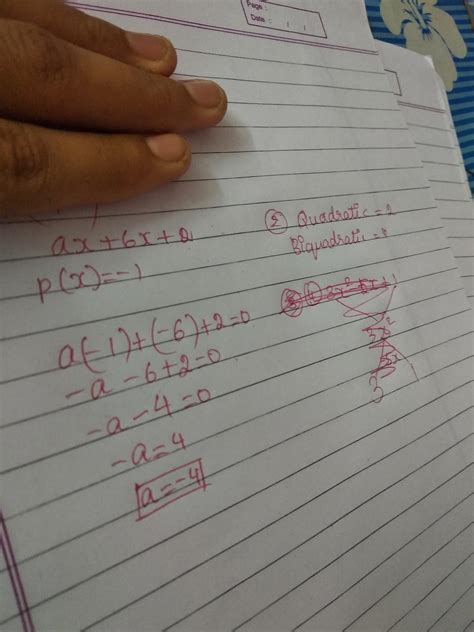 Page :
Date :
ax + 6x + 2
p(x) = -1
a(-1) + (-6) + 2 = 0
-a - 6 + 2 = 0
-a - 4 = 0
-a = 4
a = -4
② Quadratic = 2
Biquadratic =